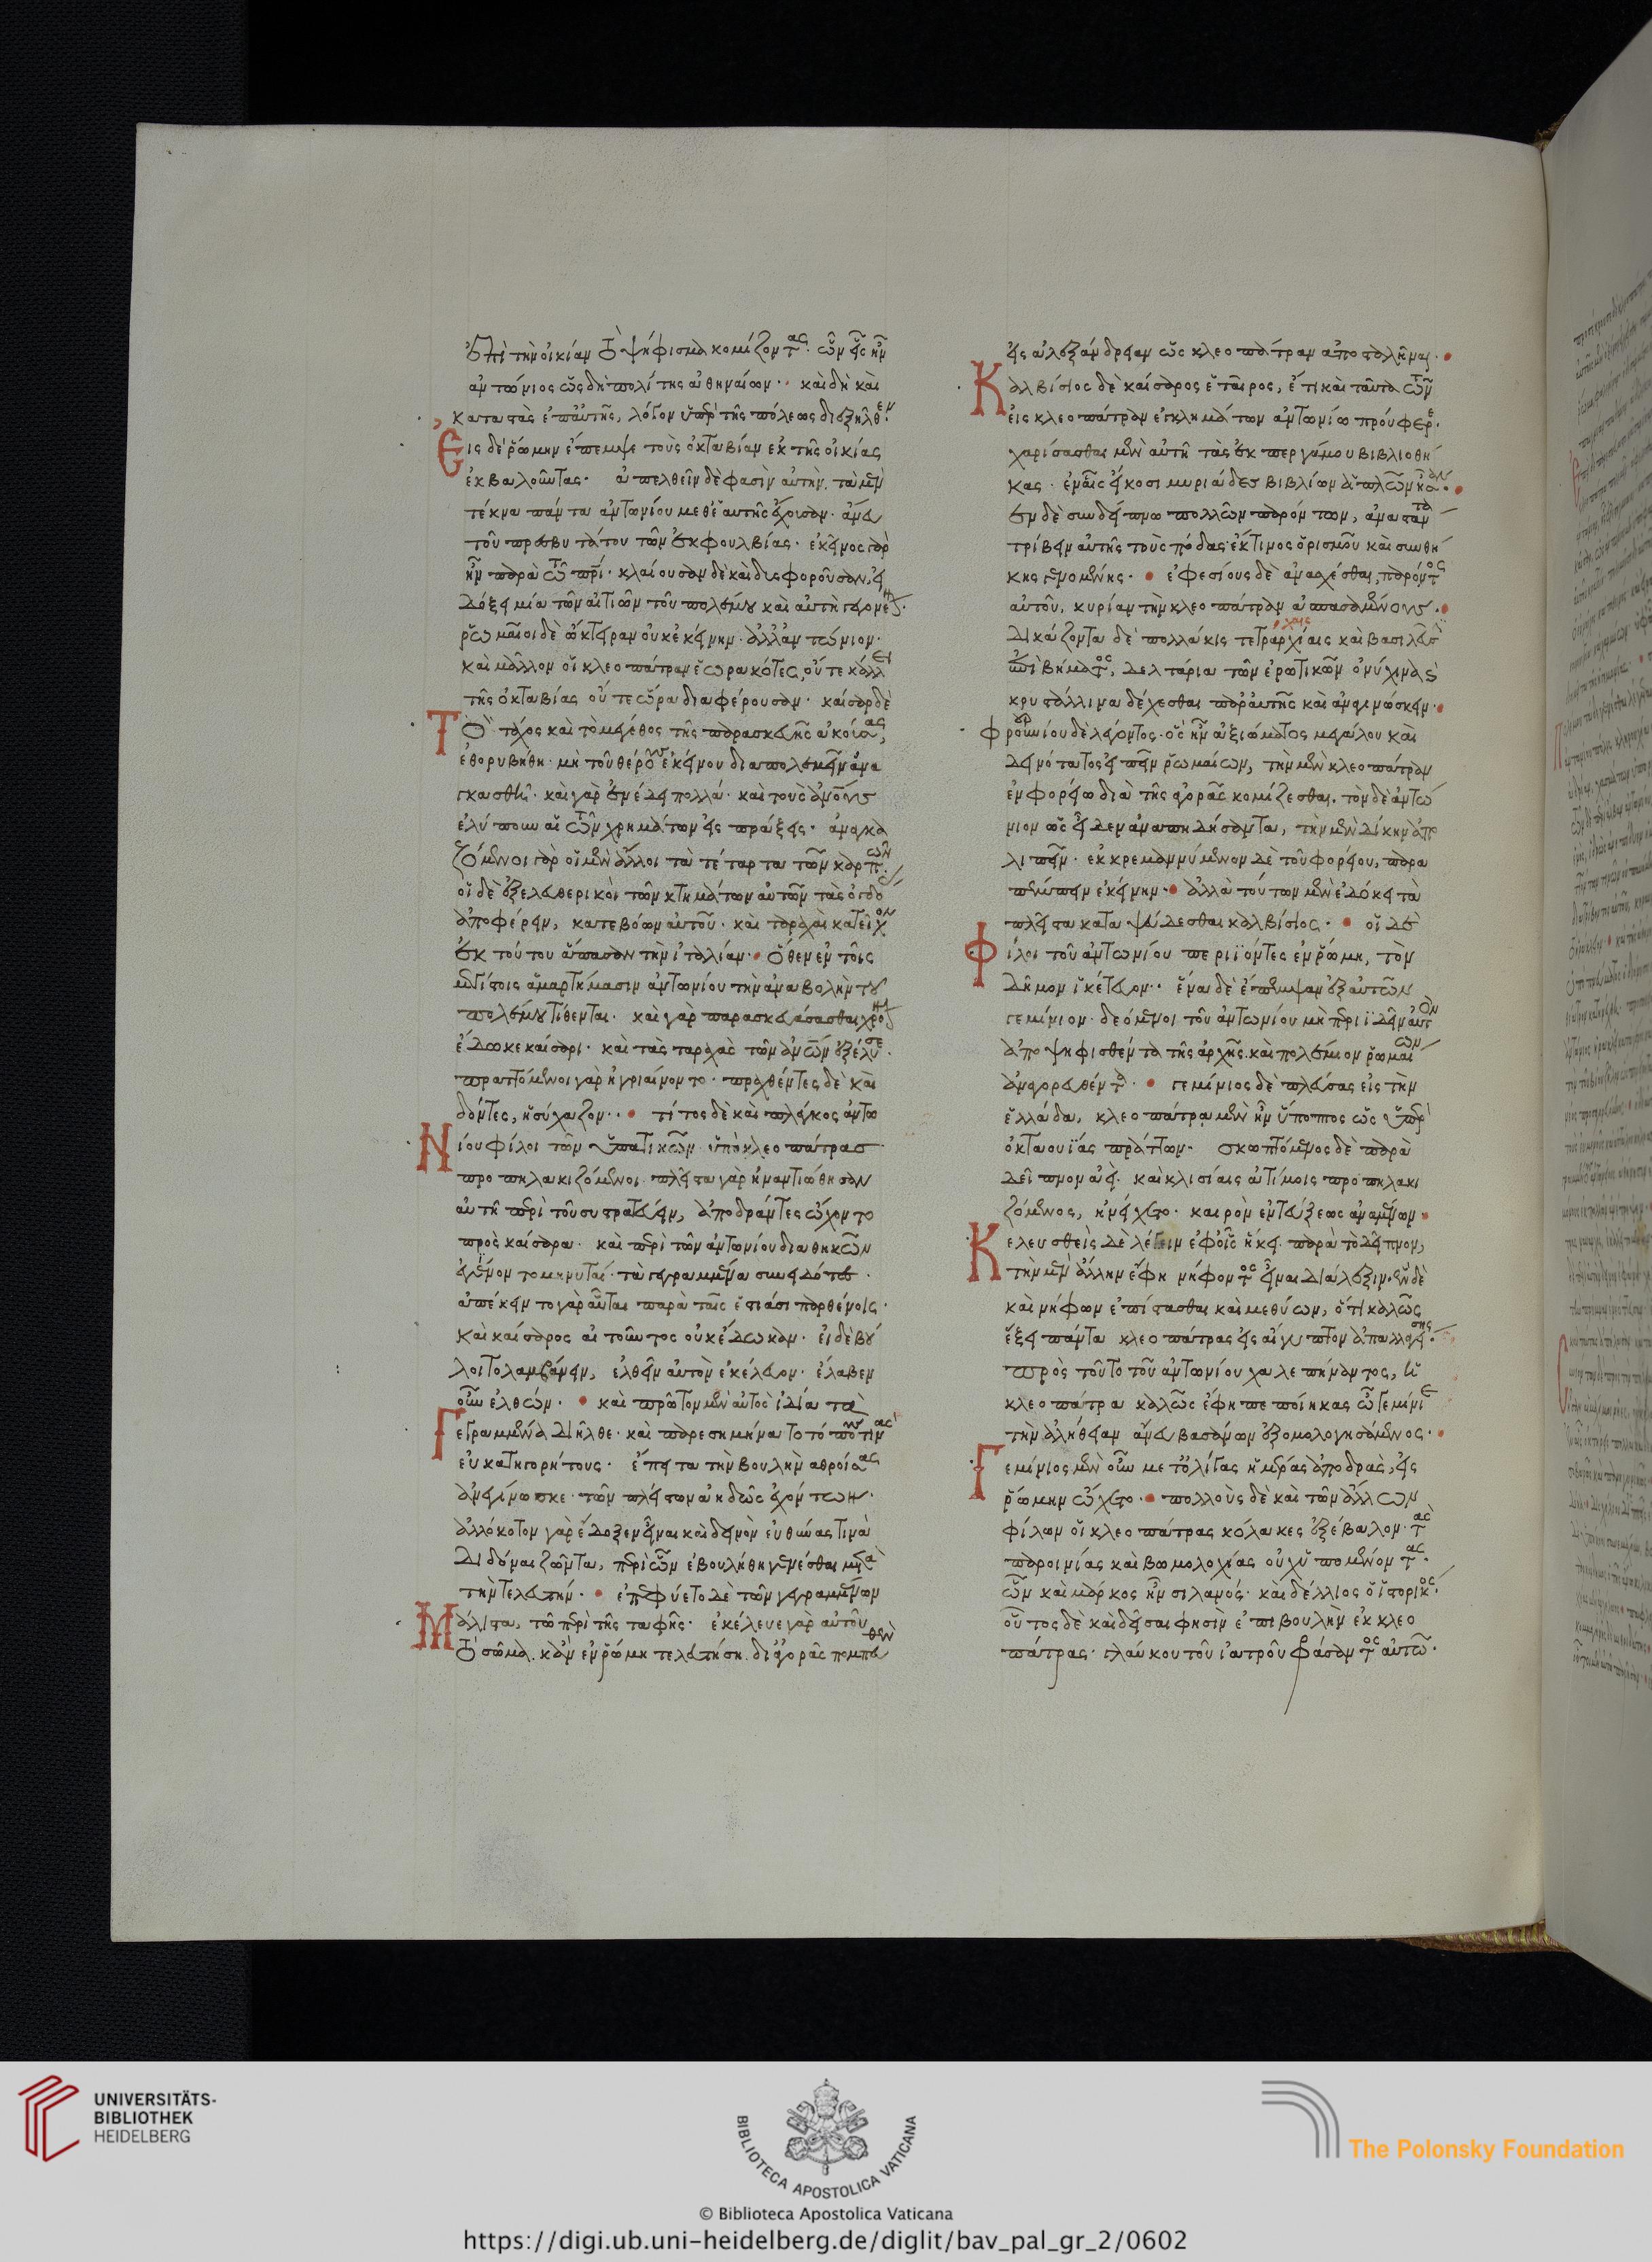 ἐπὶ τὴν οἰκίαν τὸ ψήφισμα κομίζοντας· ὧν εἷς ἦν
ἀντώνιος ὡς δὴ πολίτης ἀθηναίων· καὶ δὴ καὶ
καταστὰς ἐπ' αὐτῆς, λόγον ὑπὲρ τῆς πόλεως διεξῆλθεν·
Εἰς δὲ ῥώμην ἔπεμψε τοὺς ὀκταβίαν ἐκ τῆς οἰκίας
ἐκβαλοῦντας· ἀπελθεῖν δὲ φασὶν αὐτὴν, τὰ μὲν
τέκνα πάντα ἀντωνίου μεθ' ἑαυτῆς ἔχουσαν· ἄνευ
τοῦ πρεσβυτάτου τῶν ἐκ φουλβίας· ἐκεῖνος γὰρ
ἦν παρὰ τῶ πατρί· κλαίουσαν δὲ καὶ δυσφοροῦσαν, εἰ
δόξει μία τῶν αἰτιῶν τοῦ πολέμου καὶ αὐτὴ γεγονέναι·
ῥωμαῖοι δὲ ὤκτειραν οὐκ ἐκείνην· ἀλλ' ἀντώνιον·
καὶ μᾶλλον οἱ κλεοπάτραν ἑωρακότες, οὔτε κάλλει
τῆς ὀκταβίας οὔτε ὥρα διαφέρουσαν· καῖσαρ δὲ
Τὸ τάχος καὶ τὸ μέγεθος τῆς παρασκευῆς ἀκούσας,
ἐθορυβήθη· μὴ τοῦ θέρους ἐκείνου διαπολεμεῖν ἀνα
γκασθῆ· καὶ γὰρ ἐνέδει πολλά· καὶ τοὺς ἀνθρώπους
ἐλύπουν αἱ τῶν χρημάτων εἰσπράξεις· ἀναγκα
ζόμενοι γὰρ οἱ μὲν ἄλλοι τὰ τέταρτα τῶν καρπῶν·
οἱ δὲ ἐξελευθερικοὶ τῶν κτημάτων αὐτῶν τὰς ὀγδό
ἀποφέρειν, κατεβόων αὐτοῦ· καὶ ταραχαὶ κατεῖχον
ἐκ τούτου ἅπασαν τὴν ἰταλίαν· ὅθεν ἐν τοῖς
μεγίστοις ἁμαρτήμασιν ἀντωνίου τὴν ἀναβολὴν τοῦ
πολέμου τίθενται· καὶ γὰρ παρασκευάσασθαι χρόνον
ἔδωκε καίσαρι· καὶ τὰς ταραχὰς τῶν ἀνθρώπων ἐξέλυσε·
πραττόμενοι γὰρ ἠγριαίνοντο· πραχθέντες δὲ καὶ
δόντες, ἡσύχαζον·· τίτος δὲ καὶ πλάγκος ἀντω
Νίου φίλοι τῶν ὑπατικῶν ὑπὸ κλεοπάτρας
προπηλακιζόμενοι· πλεῖστα γὰρ ἠναντιώθησαν
αὐτῆ περὶ τοῦ συστρατεύειν, ἀποδράντες ὤχοντο
πρὸς καίσαρα· καὶ περὶ τῶν ἀντωνίου διαθηκῶν
ἐγένοντο μηνυταί· τὰ γεγραμμένα συνειδότες·
ἀπέκειντο γὰρ αὗται παρὰ ταῖς ἑστιάσι παρθένοις·
καὶ καίσαρος αἰτοῦντος οὐκ ἔδωκαν· εἰ δὲ βού
λοιτο λαμβάνειν, ἐλθεῖν αὐτὸν ἐκέλευον· ἔλαβεν
οὖν ἐλθών· καὶ πρῶτον μὲν αὐτὸς ἰδία τὰ
Γεγραμμένα διῆλθε· καὶ παρεσημήνατο τόπους τινὰς
εὐκατηγορήτους· ἔπειτα τὴν βουλὴν ἀθροίσας
ἀνεγίνωσκε· τῶν πλείστων ἀηδῶς ἐχόντων·
ἀλλόκοτον γὰρ ἔδοξεν εἶναι καὶ δεινὸν εὐθύνας τινὰ
διδόναι ζῶντα, περὶ ὧν ἐβουλήθη γενέσθαι μετὰ
τὴν τελευτήν· ἐπεφύετο δὲ τῶν γεγραμμένων
Μάλιστα, τῶ περὶ τῆς ταφῆς· ἐκέλευε γὰρ αὐτοῦ
τὸ σῶμα, κἂν ἐν ῥώμη τελευτήση, δι' ἀγορᾶς πομπευθὲν
εἰς ἀλεξάνδρειαν ὡς κλεοπάτραν ἀποσταλῆναι·
Καλβίσιος δὲ καίσαρος ἑταῖρος, ἔτι καὶ ταῦτα τῶν
εἰς κλεοπάτραν ἐγκλημάτων ἀντωνίω προὔφερε·
χαρίσασθαι μὲν αὐτῆ τὰς ἐκ περγάμου βιβλιοθή
κας· ἐν αἷς εἴκοσι μυριάδες βιβλίων ἁπλῶν ἦσαν·
ἐν δὲ συνδείπνω πολλῶν παρόντων, ἀναστάντα
τρίβειν αὐτῆς τοὺς πόδας ἔκ τινος ὁρισμοῦ καὶ συνθή
κης γενομένης· ἐφεσίους δὲ ἀνασχέσθαι, παρόντος
αὐτοῦ, κυρίαν τὴν κλεοπάτραν ἀσπασαμένους·
δικάζοντα δὲ πολλάκις τετράρχαις καὶ βασιλεῦσι
ἐπὶ βήματος, δελτάρια τῶν ἐρωτικῶν ὀνύχινα
κρυστάλλινα δέχεσθαι παρ' αὐτῆς καὶ ἀναγινώσκειν·
φουρνίου δὲ λέγοντος· ὃς ἦν ἀξιώματος μεγάλου καὶ
δεινότατος εἰπεῖν ῥωμαίων, τὴν μὲν κλεοπάτραν
ἐν φορείω διὰ τῆς ἀγορᾶς κομίζεσθαι· τὸν δὲ ἀντώ
νιον ὡς εἶδεν ἀναπηδήσαντα, τὴν μὲν δίκην ἀπο
λιπεῖν· ἐκκρεμαννύμενον δὲ τοῦ φορείου, παρα
πέμπειν ἐκείνην· ἀλλὰ τούτων μὲν ἐδόκει τὰ
πλεῖστα καταψεύδεσθαι καλβίσιος· οἱ δὲ
Φίλοι τοῦ ἀντωνίου περιϊόντες ἐν ῥώμη, τὸν
δῆμον ἱκέτευον·· ἕνα δὲ ἔπεμψαν ἐξ αὑτῶν
γεμίνιον· δεόμενοι τοῦ ἀντωνίου μὴ περιϊδεῖν αὐτὸν
ἀποψηφισθέντα τῆς ἀρχῆς, καὶ πολέμιον ῥωμαίων
ἀναγορευθέντα· γεμίνιος δὲ πλεύσας εἰς τὴν
ἑλλάδα, κλεοπάτρα μὲν ἦν ὕποπτος ὡς ὑπὲρ
ὀκταουίας πράττων· σκωπτόμενος δὲ παρὰ
δεῖπνον ἀεί· καὶ κλισίαις ἀτίμοις προπηλακι
ζόμενος, ἠνείχετο· καιρὸν ἐντεύξεως ἀναμένων·
Κελευσθεὶς δὲ λέγειν ἐφ' οἷς ἥκει παρὰ τὸ δεῖπνον,
τὴν μὲν ἄλλην ἔφη νήφοντος εἶναι διάλεξιν· ἓν δὲ
καὶ νήφων ἐπίστασθαι καὶ μεθύων, ὅτι καλῶς
ἕξει πάντα κλεοπάτρας εἰς αἴγυπτον ἀπαλλαγείσης·
πρὸς τοῦτο τοῦ ἀντωνίου χαλεπήναντος, ἡ
κλεοπάτρα καλῶς ἔφη πεποίηκας ὦ γεμίνιε
τὴν ἀλήθειαν ἄνευ βασάνων ἐξομολογησάμενος·
Γεμίνιος μὲν οὖν μετ' ὀλίγας ἡμέρας ἀποδρὰς, εἰς
ῥώμην ὤχετο· πολλοὺς δὲ καὶ τῶν ἄλλων
φίλων οἱ κλεοπάτρας κόλακες ἐξέβαλον· τὰς
παροινίας καὶ βωμολοχίας οὐχ ὑπομένοντας·
ὧν καὶ μάρκος ἦν σιλανός· καὶ δέλλιος ὁ ἱστορικός·
οὗτος δὲ καὶ δεῖσαί φησὶν ἐπιβουλὴν ἐκ κλεο
πάτρας· γλαύκου τοῦ ἰατροῦ φράσαντος αὐτῶ·
UNIVERSITÄTS-
BIBLIOTHEK
HEIDELBERG
BIBLIOTECA APOSTOLICA VATICANA
The Polonsky Foundation
© Biblioteca Apostolica Vaticana
https://digi.ub.uni-heidelberg.de/diglit/bav_pal_gr_2/0602